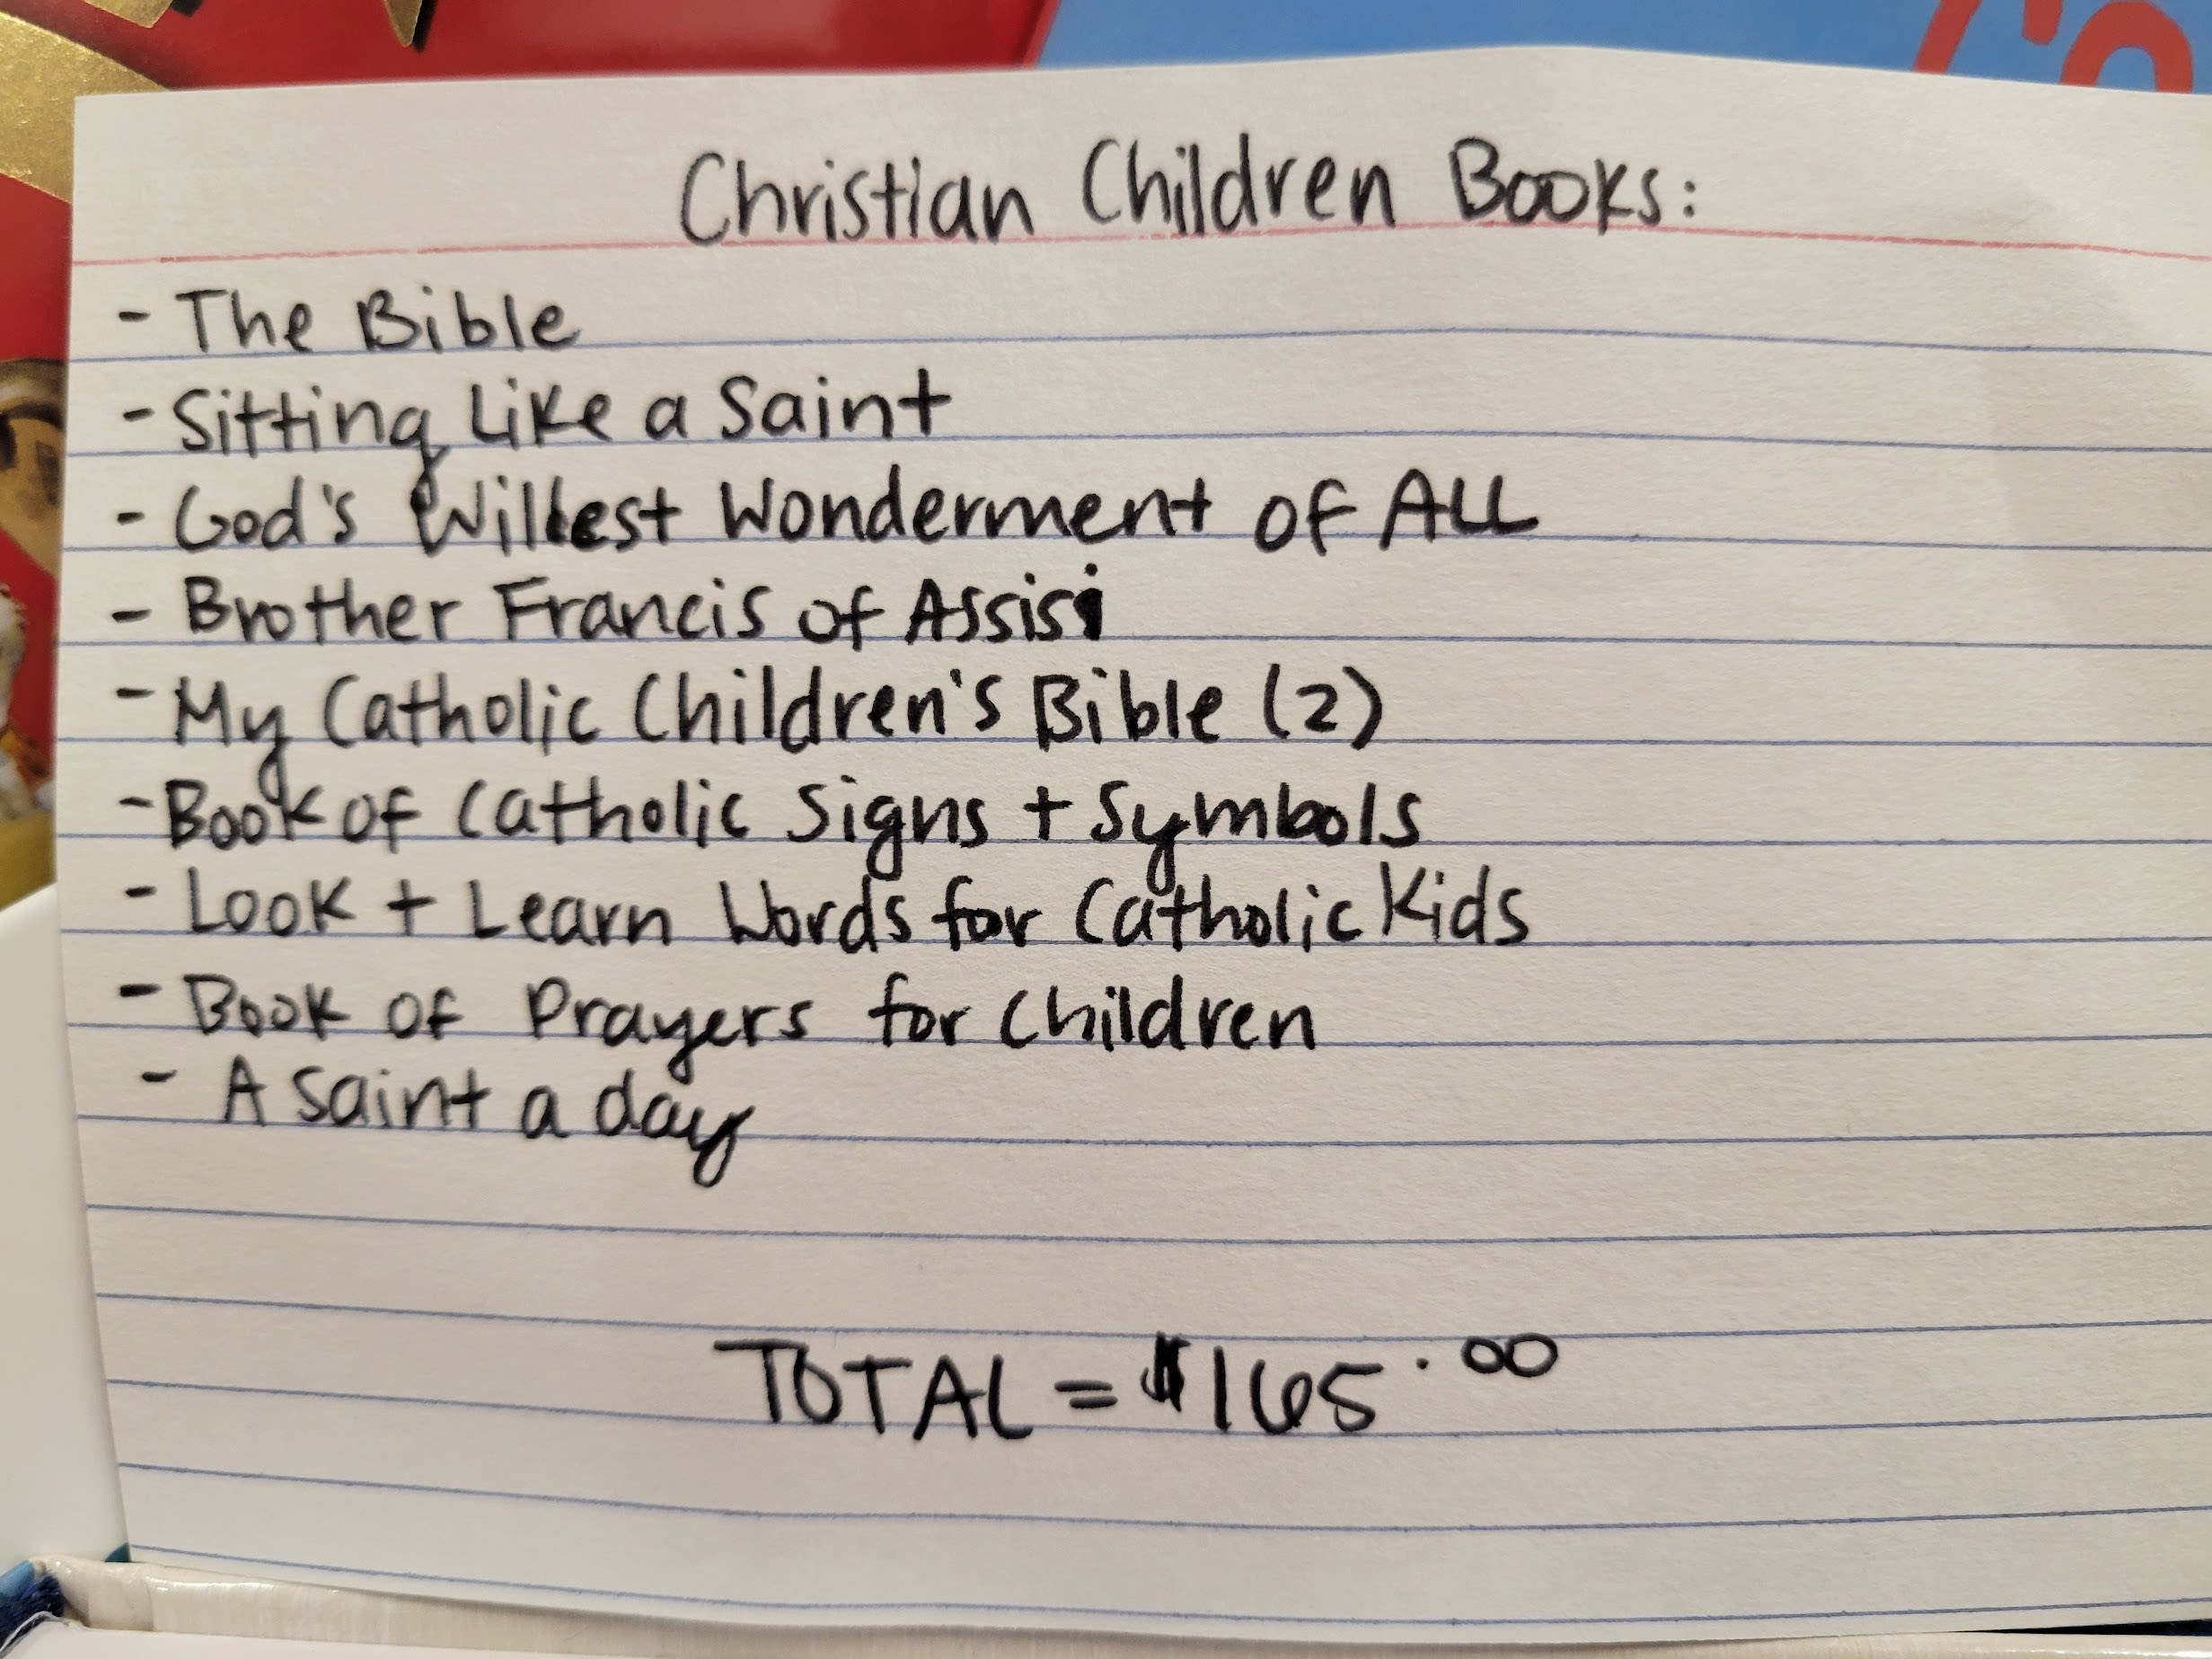 Christian Children Books:
- The Bible
- Sitting Like a Saint
- God's Wildest Wonderment of ALL
- Brother Francis of Assisi
- My Catholic Children's Bible (2)
- Book of Catholic Signs + Symbols
- Look + Learn Words for Catholic Kids
- Book of Prayers for Children
- A saint a day
TOTAL = $165.00